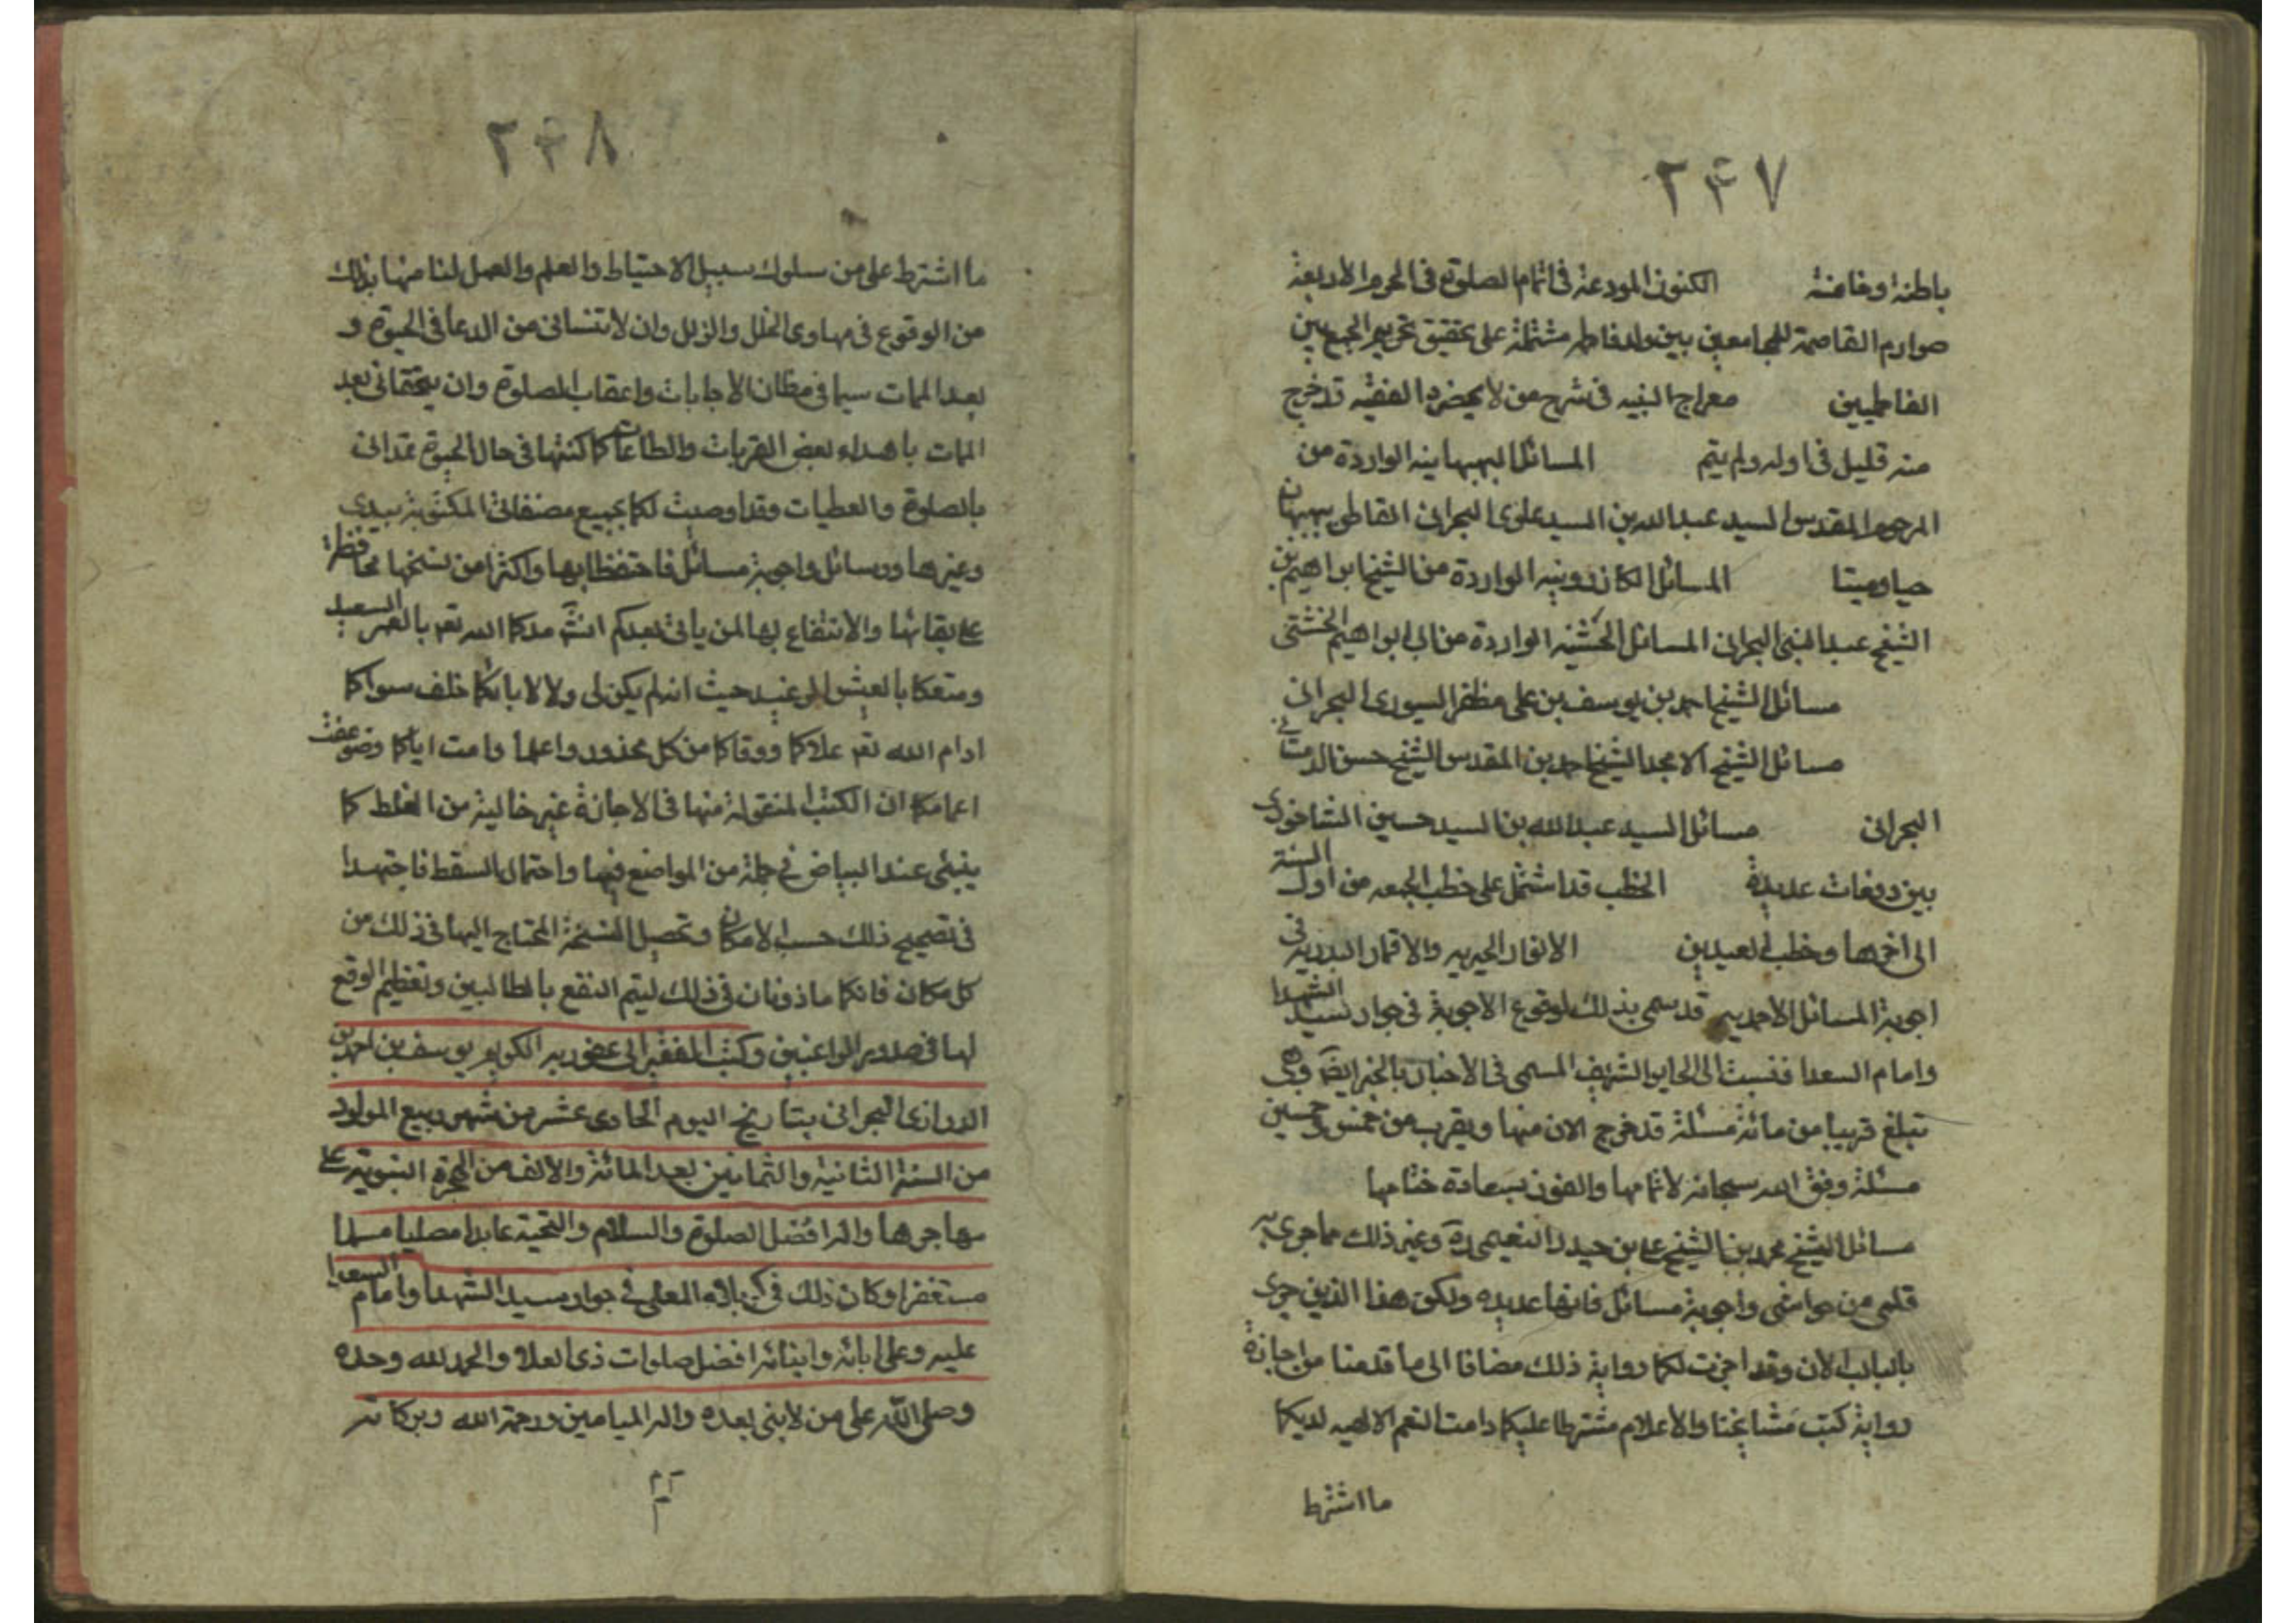 ٢٤٧
باطنة وغامضة الكنوز المودعة فى اتمام الصلوة فى الحرم الاربعة
صوارم القاصمة للجامعين بين ولد فاطمه مشتملة على تحقيق تحريم الجمع بين
الفاطميين معراج النبيه فى شرح من لا يحضره الفقيه قد خرج
منه قليل فى اوله ولم يتم المسائل البهبهانيه الواردة من
المرحوم المقدس السيد عبد الله بن السيد علوى البحرانى القاطن ببهبهان
حيا وميتا المسائل الكازرونيه الواردة من الشيخ ابراهيم بن
الشيخ عبد النبى البحرانى المسائل الخشتيه الواردة من ابراهيم الخشتى
مسائل الشيخ احمد بن يوسف بن على مظفر السيورى البحرانى
مسائل الشيخ الامجد الشيخ احمد بن المقدس الشيخ حسن الدمستانى
البحرانى مسائل السيد عبد الله بن السيد حسين الشاخورى
بين دفعات عديدة الخطب قد اشتمل على خطب الجمعه من اول السنة
الى اخرها وخطب العيدين الانوار الحيريه والاقمار البدريه فى
اجوبة المسائل الاحمديه قد سمى بذلك لوقوع الاجوبة فى جوار سيد الشهدا
وامام السعدا فنسبت الى الحاير الشريف المسمى فى الاخبار بالخير ايضا وهى
تبلغ قريبا من مائة مسئلة قد خرج الان منها ويقرب من خمس وخمسين
مسئلة وفق الله سبحانه لاتمامها والفوز بسعادة ختامها
مسائل الشيخ محمد بن الشيخ على بن حيدر النعيمى ره وغير ذلك مما جرى به
قلمى من حواشى واجوبة مسائل فانها عديده ولكن هذا الذين جرى
بالبال الان وقد اجزت لكما رواية ذلك مضافا الى ما قدمنا من اجازة
رواية كتب مشايخنا والاعلام مشترطا عليكما دامت النعم الالهيه لديكما
ما اشترط
٢٤٨
ما اشترط على من سلوك سبيل الاحتياط والعلم والعمل لنا منها بذلك
من الوقوع فى مهاوى الخلل والزلل وان لا تنسانى من الدعا فى الحيوة و
بعد الممات سيما فى مظان الاجابات واعقاب الصلوة وان يتحقانى بعد
الممات باهداء بعض القربات والطاعات كما كنتما فى حال الحيوة تمدانى
بالصلوة والعطيات وقد اوصيت لكما بجميع مصنفاتى المكتوبة بيدى
وغيرها ورسائل واجوبة مسائل فاحتفظا بها واكثرا من نسخها محافظة
على بقائها والانتفاع بها لمن ياتى بعدكم انش مدكما الله تعه بالعمر السعيد
ومتعكما بالعيش الرغيد حيث انه لم يكن لى ولا لابائكما خلف سواكما
ادام الله تعه علاكما ووقاكما من كل محذور واعلما دامت اياكما وضوعفت
اعمامكما ان الكتب المنقولة منها فى الاجازة غير خالية من الغلط كما
ينبئى عند البياض فى جملة من المواضع فيها واحتمال السقط فاجتهدا
فى تصحيح ذلك حسب الامكان وتحصيل النسخة المحتاج اليها فى ذلك من
كل مكان فانكما ماذونان فى ذلك ليتم النفع بالطالبين وتعظيم الوقع
لها فى صدور الراغبين وكتب الفقير الى عفو ربه الكريم يوسف بن احمد بن
الدرازى البحرانى بتاريخ اليوم الحادى عشر من شهر ربيع المولود
من السنة الثانية والثمانين بعد المائة والالف من الهجرة النبوية على
مهاجرها واله افضل الصلوة والسلام والتحية عابدا مصليا مسلما
مستغفرا وكان ذلك فى كربلاء المعلى فى جوار سيد الشهدا وامام السعدا
عليه وعلى ابائه وابنائه افضل صلوات ذى العلا والحمد لله وحده
وصلى الله على من لا نبى بعده واله الميامين ورحمة الله وبركاته